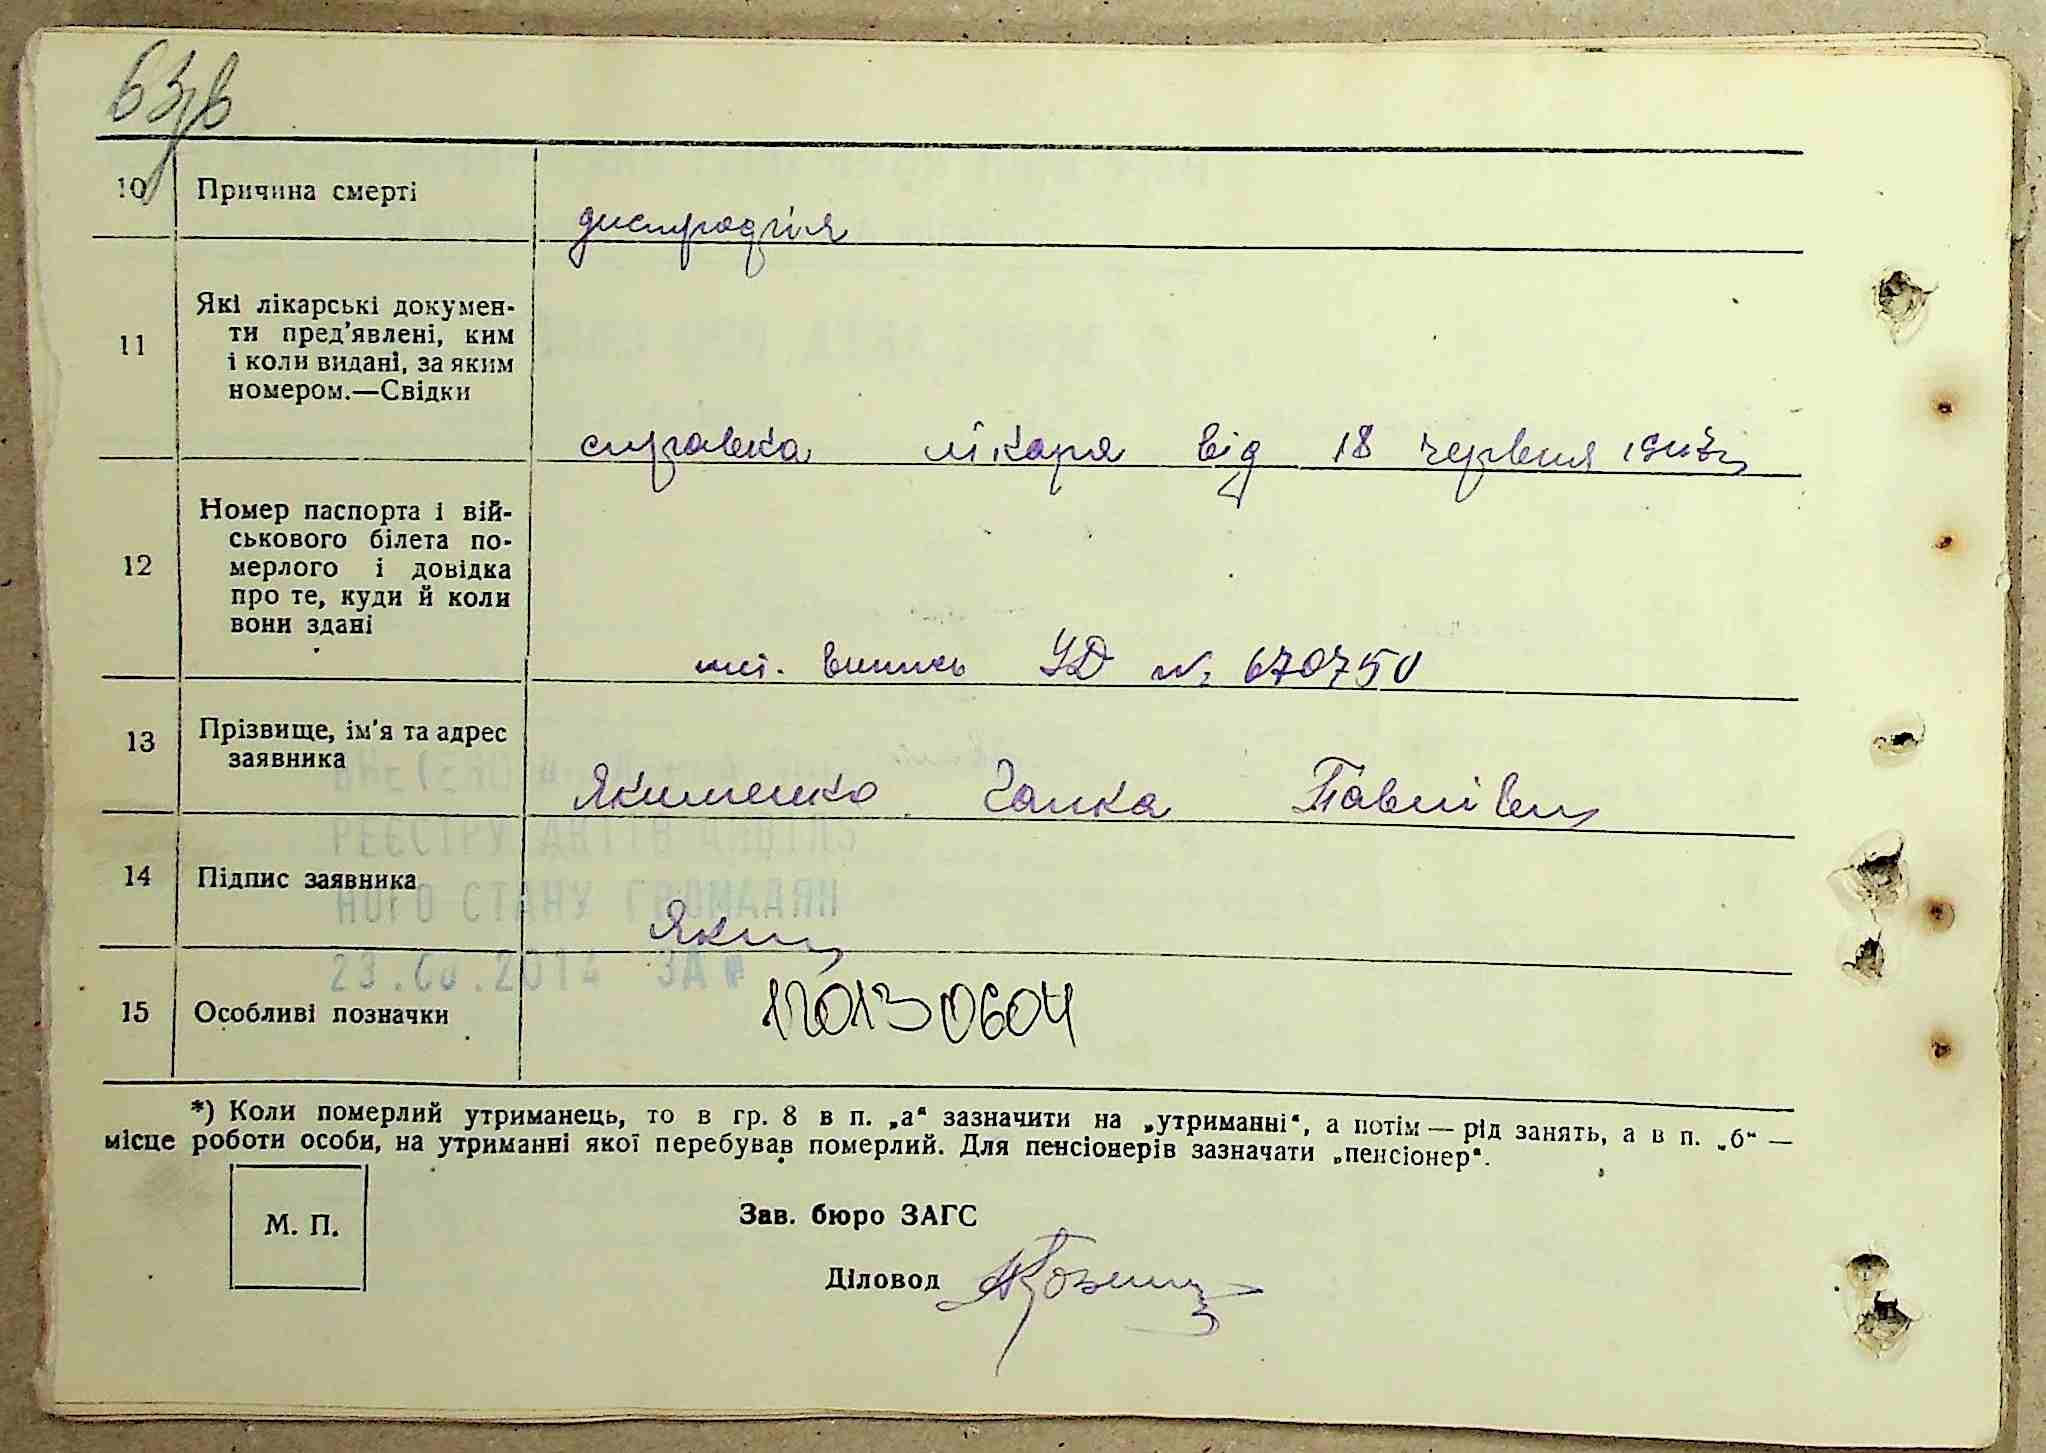 63зв
10 Причина смерті
дистрофія
11 Які лікарські докумен-
ти пред'явлені, ким
і коли видані, за яким
номером.—Свідки
справка лікаря від 18 червня 1947
12 Номер паспорта і вій-
ськового білета по-
мерлого і довідка
про те, куди й коли
вони здані
випись УД № 670750
13 Прізвище, ім'я та адрес
заявника
Якименко Ганка Павлівн
14 Підпис заявника
РЕЄСТРУ АКТІВ ЦИВІЛЬ
НОГО СТАНУ ГРОМАДЯН
Яким
23.  .2014 ЗА №
15 Особливі позначки
120130604
*) Коли померлий утриманець, то в гр. 8 в п. „а“ зазначити на „утриманні“, а потім — рід занять, а в п. „б“ —
місце роботи особи, на утриманні якої перебував померлий. Для пенсіонерів зазначати „пенсіонер“.
М. П.
Зав. бюро ЗАГС
Діловод